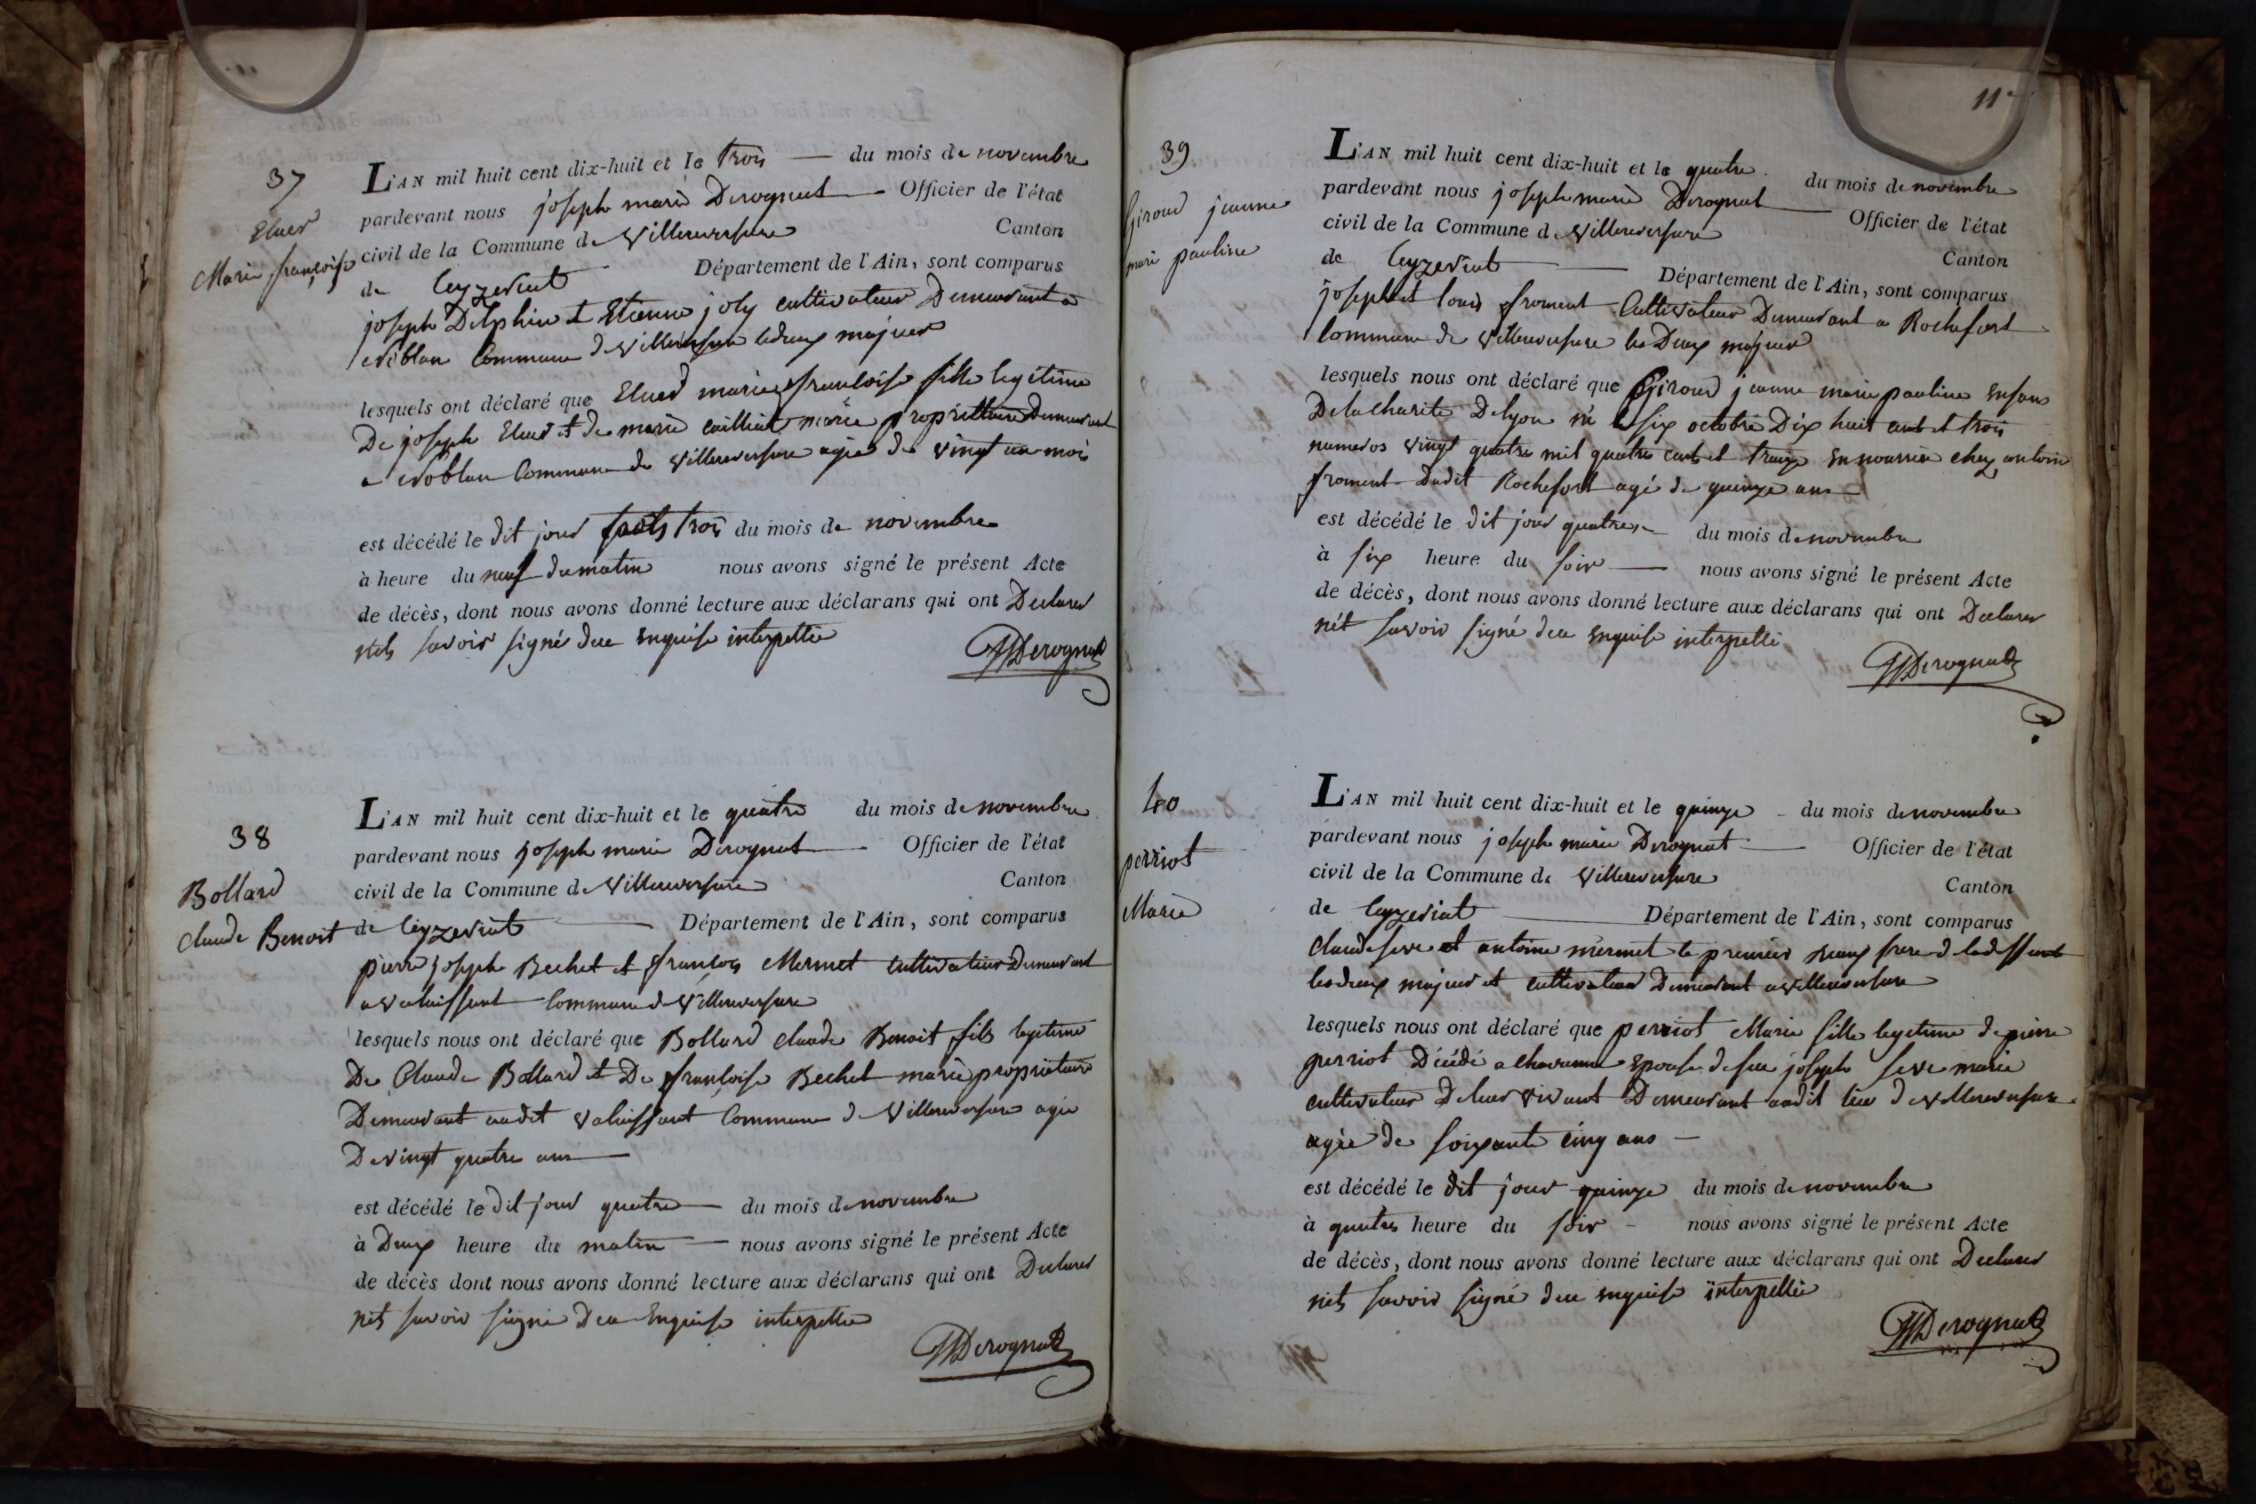 37
Eluer
Marie françoise
L'AN mil huit cent dix-huit et le trois du mois de novembre
pardevant nous joseph marie Derognat Officier de l'état
civil de la Commune de Villereversure Canton
de Ceyzeriat Département de l'Ain, sont comparus
joseph Delphin et Etienne joly cultivateur Demeurant a
Noblan Commune de Villereversure les deux majeur
lesquels ont déclaré que Elued marie françoise fille legitime
De joseph Elued et de marie cailliat mariée propriettaire Demeurant
a Noblan Commune de Villereversure agée de vingt un mois
est décédé le dit jour trois du mois de novembre
à heure du neuf du matin nous avons signé le présent Acte
de décès, dont nous avons donné lecture aux déclarans qui ont Declarer
savoir signé dece enquise interpellée
JMDerognat
38
Bollard
Claude Benoit
L'AN mil huit cent dix-huit et le quatre du mois de novembre
pardevant nous joseph marie Derognat Officier de l'état
civil de la Commune de Villereversure Canton
de Ceyzeriat Département de l'Ain, sont comparus
pierre joseph Bechet et françois Mermet cultivateur Demeurant
a valuissant Commune de Villereversure
lesquels nous ont déclaré que Bollard Claude Benoit fils legitime
De Claude Bollard et De françoise Bechet marié propriétaire
Demeurant audit valuissant Commune de Villereversure agée
De vingt quatre ans
est décédé le dit jour quatre du mois de novembre
à Deux heure du matin nous avons signé le présent Acte
de décès dont nous avons donné lecture aux déclarans qui ont Declarer
savoir signé dece enquise interpellée
JMDerognat
11
39
Giroud jeanne
marie pauline
L'AN mil huit cent dix-huit et le quatre du mois de novembre
pardevant nous joseph marie Derognat Officier de l'état
civil de la Commune de Villereversure Canton
de Ceyzeriat Département de l'Ain, sont comparus
joseph et louis froment Cultivateur Demeurant a Rochefort
Commune de Villereversure les Deux majeur
lesquels nous ont déclaré que Giroud jeanne marie pauline enfans
De la charite De lyon né le six octobre Dix huit cent et trois
numeros vingt quatre mil quatre cents et treize en nourrice chez antoine
froment Dudit Rochefort agé de quinze ans
est décédé le dit jour quatre du mois de novembre
à six heure du soir nous avons signé le présent Acte
de décès, dont nous avons donné lecture aux déclarans qui ont Declarer
savoir signé dece enquise interpellé
JMDerognat
40
perriot
Marie
L'AN mil huit cent dix-huit et le quinze du mois de novembre
pardevant nous joseph marie Derognat Officier de l'état
civil de la Commune de Villereversure Canton
de Ceyzeriat Département de l'Ain, sont comparus
Claude seve et antoine mermet le premier beaux frere de la deffunte
les deux majeur et cultivateur Demeurant a Villereversure
lesquels nous ont déclaré que perriot Marie fille legetime de pierre
perriot Décédé a chavanne Epouse de feu joseph seve marie
cultivateur De luer vivant Demeurant audit lieu de Villereversure
agée de soixante cinq ans
est décédé le dit jour quinze du mois de novembre
à quatres heure du soir nous avons signé le présent Acte
de décès, dont nous avons donné lecture aux déclarans qui ont Declarer
savoir signé dece enquise interpellée
JMDerognat